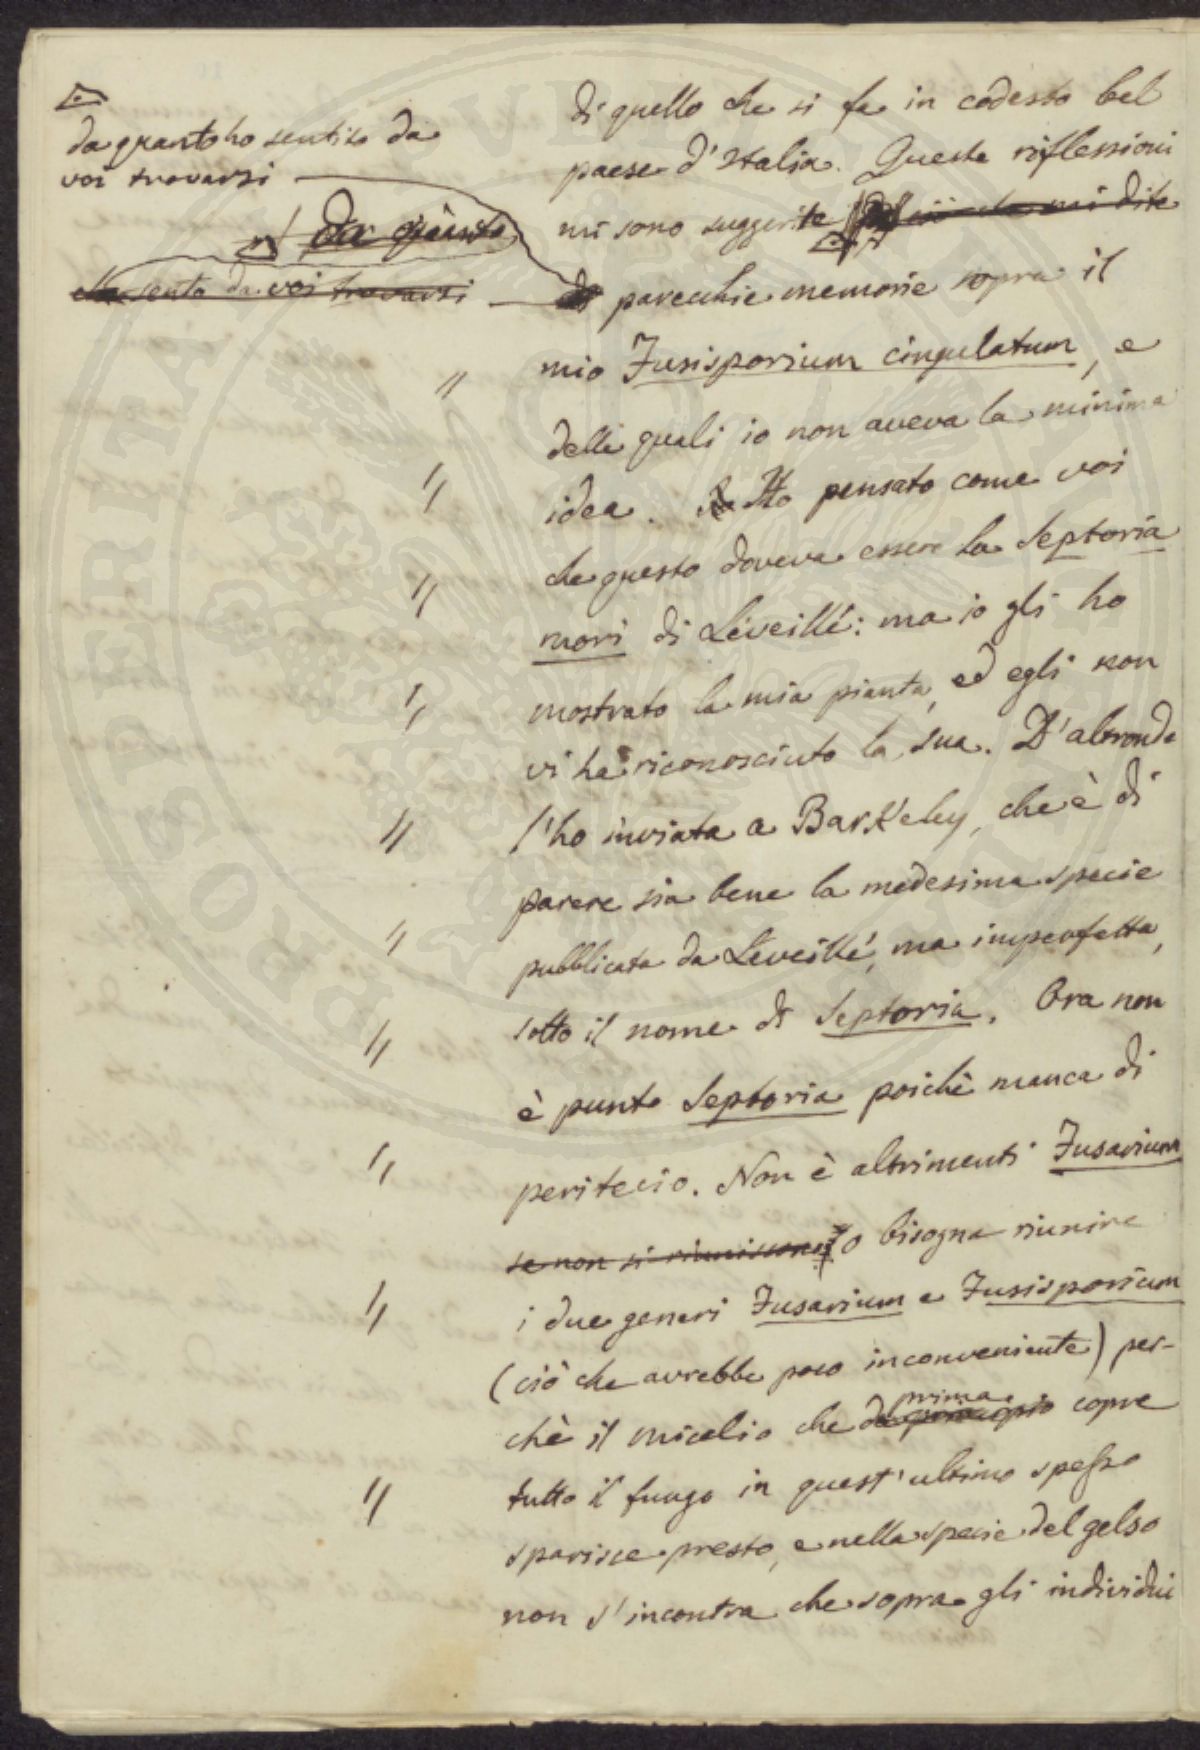 da quanto ho sentito da
voi trovarsi
da quanto
che sento da voi trovarsi
di quello che si fa in codesto bel
paese d'Italia. Queste riflessioni
mi sono suggerite ciò che mi dite
di parecchie memorie sopra il
mio Fusisporium cingulatum, e
delle quali io non aveva la minima
idea. Ho pensato come voi
che questo doveva essere la Septoria
mori di Léveillé: ma io gli ho
mostrato la mia pianta, ed egli non
vi ha riconosciuto la sua. D'altronde
l'ho inviata a Barkeley, che è di
parere sia bene la medesima specie
pubblicata da Léveillé, ma imperfetta,
sotto il nome di Septoria. Ora non
è punto Septoria poichè manca di
peritecio. Non è altrimenti Fusarium
se non si riuniscono o bisogna riunire
i due generi Fusarium e Fusisporium
(ciò che avrebbe poco inconveniente) per-
chè il micelio che da principio prima copre
tutto il fungo in quest'ultimo spesso
sparisce presto, e nella specie del gelso
non s'incontra che sopra gli individui
PROSPERITA